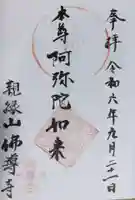 奉拝 令和六年九月二十一日
本尊阿弥陀如来
親縁山佛尊寺